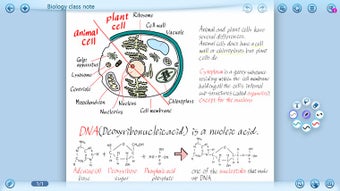 Biology class note
plant cell
animal cell
Ribosome
Cell wall
Vacuole
Golgi apparatus
Lysosome
Centriole
Mitochondrion
Nucleus
Nucleolus
Cell membrane
Chloroplasts
Animal and plant cells have
several differences.
Animal cells don't have a cell
wall or chloroplasts but plant
cells do
Cytoplasm is a
residing within the cell membrane
holding all the cell's internal
sub-structures (called organelles),
except for the nucleus
DNA (Deoxyribonucleic acid) is a nucleic acid.
Adenine
base
Deoxyribose
sugar
Phosphoric acid
phosphate
one of the nucleotides that make
up DNA
1/1